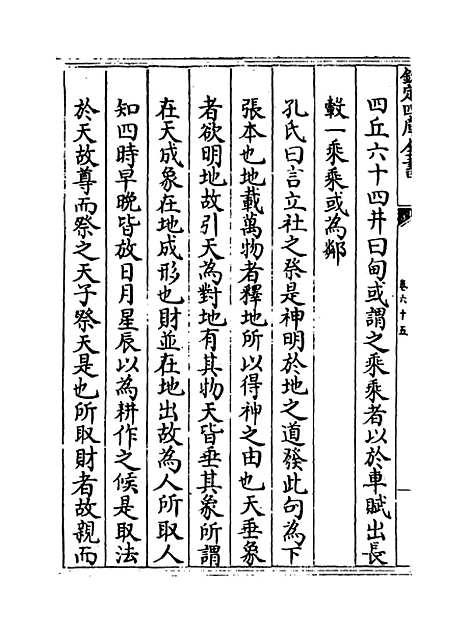 欽定四庫全書
卷六十五
四丘六十四井曰甸或謂之乘乘者以於車賦出長
轂一乘乘或為鄰
孔氏曰言立社之祭是神明於地之道發此句為下
張本也地載萬物者釋地所以得神之由也天垂象
者欲明地故引天為對地有其物天皆垂其象所謂
在天成象在地成形也財並在地出故為人所取人
知四時早晚皆放日月星辰以為耕作之候是取法
於天故尊而祭之天子祭天是也所取財者故親而